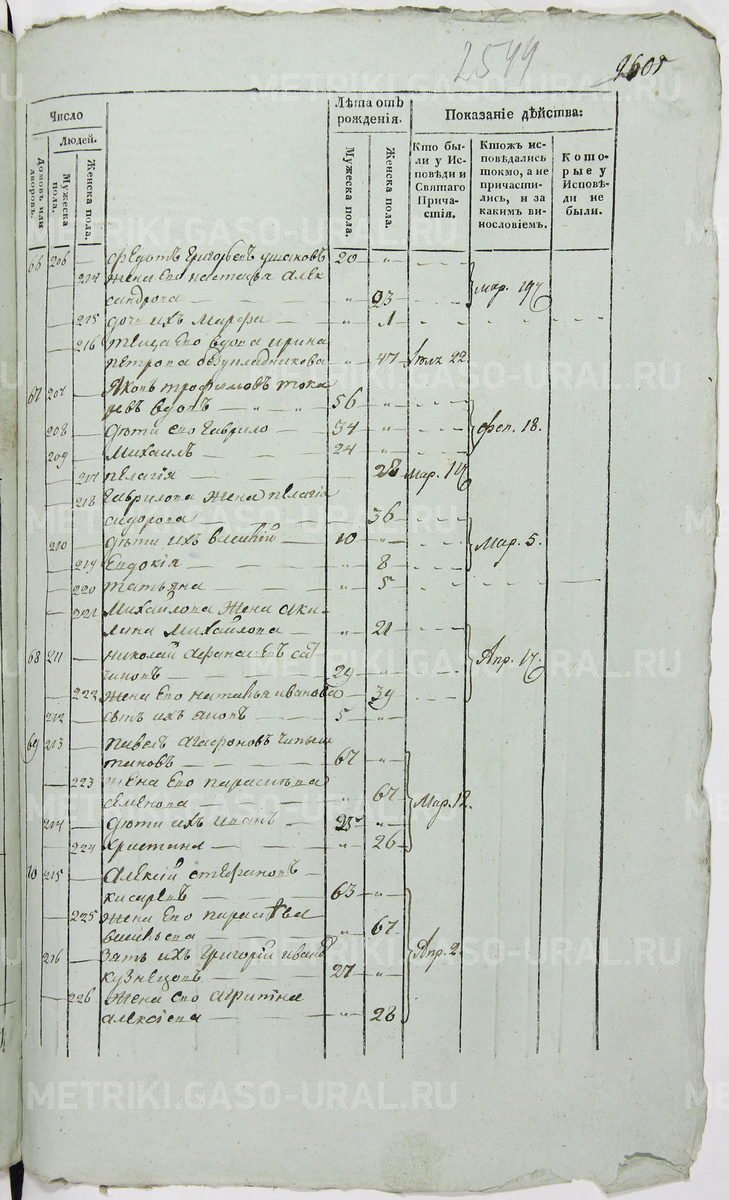 2599 2605
Число
Людей.
Домовъ или дворовъ.
Мужеска пола.
Женска пола.
Лѣта отъ рожденія.
Мужеска пола.
Женска пола.
Показаніе дѣйства:
Кто бы-
ли у Ис-
повѣди и
Святаго
Прича-
стія.
Ктожъ ис-
повѣдались
токмо, а не
причасти-
лись, и за
какимъ ви-
нословіемъ.
Кото-
рые у
Исповѣ-
ди не
были.
66 206 — Григорьевъ Ушаковъ 20 „
— 214 жена Его настасья Алек
сандрова — „ 23 Мар. 19
— 215 дочь ихъ Марфа — „ 1
— 216 теща Его вдова ирина
петрова — „ 47 22
67 207 Яковъ трофимовъ тока
ревъ вдовъ 56 „
208 — дѣти его Гаврило — 34 „ фев. 18.
209 — Михаилъ — 24 „
— 217 пелагія — 28 Мар.
— 218 Гаврилова жена пелагія
сидорова — 36
— 210 — дѣти ихъ василій — 10 „ Мар. 5.
— 219 Евдокія — 8
— 220 татьяна — „ 5
— 221 Михайлова жена аки-
лина Михайлова — „ 21
68 211 — николай афанасьевъ
29 „ Апр. 17.
— 222 жена Его наталья иванова — 39
212 — сынъ ихъ яковъ — 5 „
69 213 — павелъ агафоновъ
67 „
— 223 жена Его парасковья
семенова — „ 67 Мар. 12.
— 214 — дѣти ихъ иванъ — 25 „
— 224 Христина — „ 26
70 215 — Алексій стефановъ
кисаревъ — 63 „
— 225 жена Его парасковья
васильева — „ 67
— 216 — Зять ихъ Григорій иванов Апр. 2
кузнецовъ — 27 „
— 226 жена Его
алексіева — „ 28
METRIKI.GASO-URAL.RU